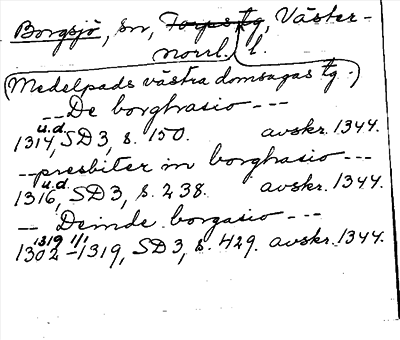 Borgsjö, sn, Torps tg, Väster-
norrl. l.
(Medelpads västra domsagas tg.)
-- De borghasio ---
1314 u.d., SD 3, s. 150. avskr. 1344.
-- presbiter in borghasio ---
1316 u.d., SD 3, s. 238. avskr. 1344.
-- Deinde borgasio ---
1319 1/1
1302-1319, SD 3, s. 429. avskr. 1344.